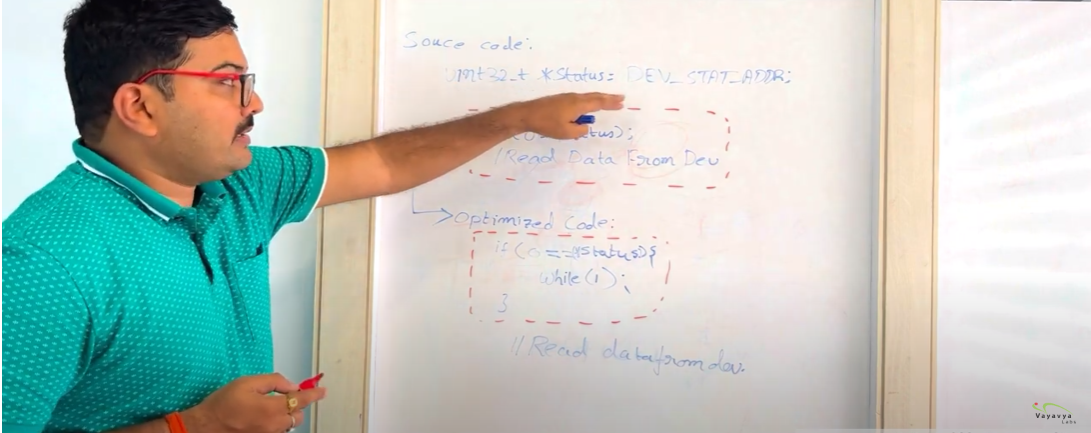 Souce code:
uint32_t *Status= DEV_STAT_ADDR;
tus);
//Read Data From Dev
Optimized Code:
if (0==*Status){
while(1);
}
// Read data from dev.
Vayavya
Labs